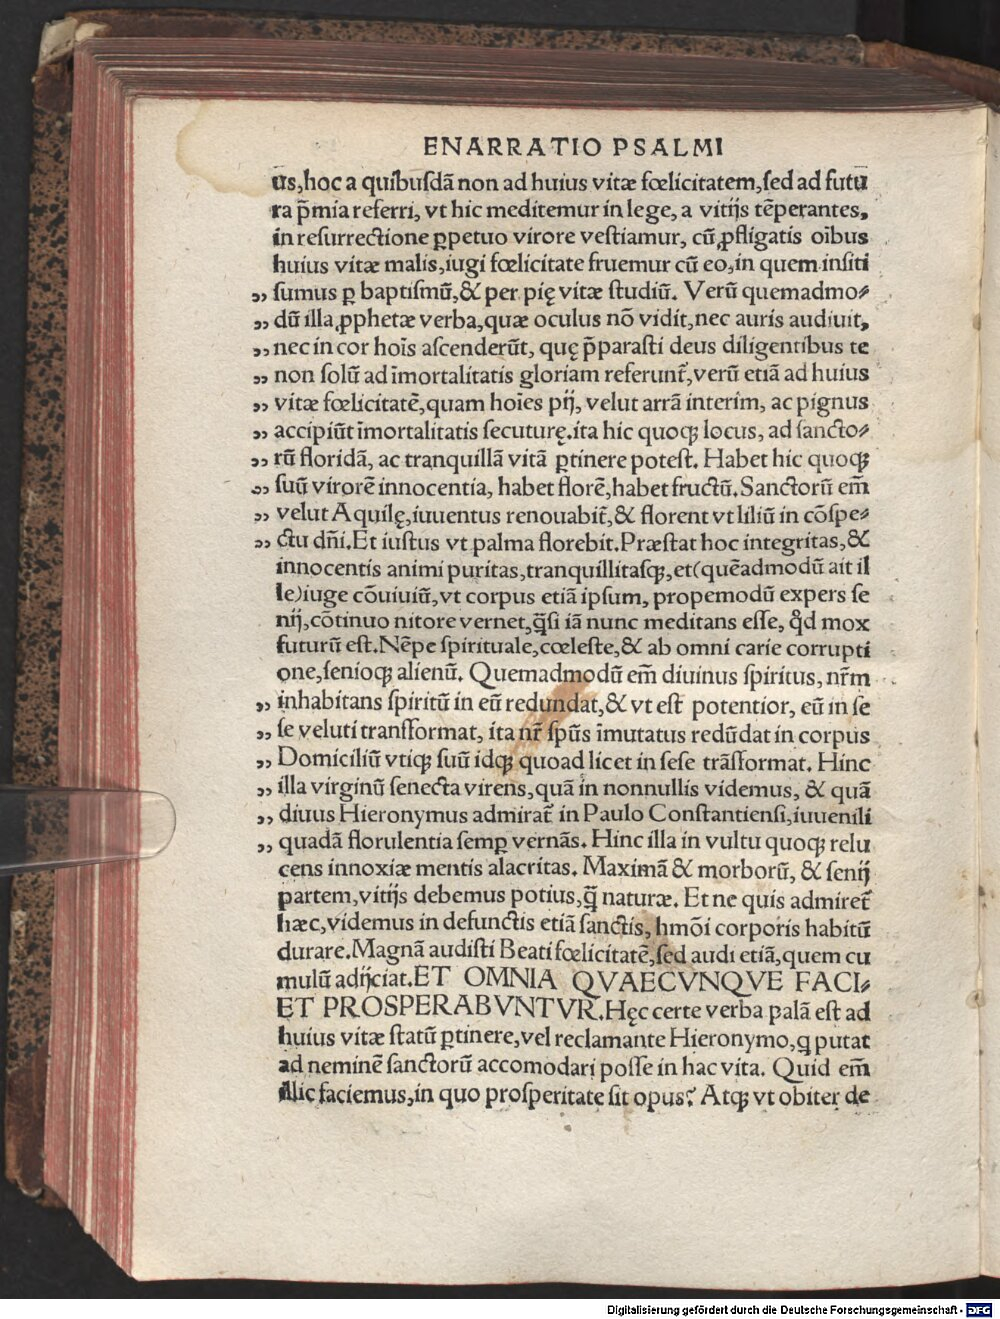 ENARRATIO PSALMI
us̄, hoc a quibusdā non ad huius vitæ fœlicitatem, sed ad futu
ra p̄mia referri, vt hic meditemur in lege, a vitijs tēperantes,
in resurrectione ꝑpetuo virore vestiamur, cū ꝓfligatis oībus
huius vitæ malis, iugi fœlicitate fruemur cū eo, in quem insiti
„ sumus ꝑ baptismū, & per pię vitæ studiū. Verū quemadmo⸗
„ dū illa ꝓphetæ verba, quæ oculus nō vidit, nec auris audiuit,
„ nec in cor hoīs ascenderūt, quę p̄parasti deus diligentibus te
„ non solū ad īmortalitatis gloriam referunt̄, verū etiā ad huius
„ vitæ fœlicitatē, quam hoīes pij, velut arrā interim, ac pignus
„ accipiūt īmortalitatis secuturę. ita hic quoqꝫ locus, ad sancto⸗
„ rū floridā, ac tranquillā vitā ꝑtinere potest. Habet hic quoqꝫ
„ suū virorē innocentia, habet florē, habet fructū. Sanctorū em̄
„ velut Aquilę, iuuentus renouabit̄, & florent vt liliū in cōspe⸗
„ ctu dn̄i. Et iustus vt palma florebit. Præstat hoc integritas, &
innocentis animi puritas, tranquillitasqꝫ, et (quēadmodū ait il
le) iuge cōuiuiū, vt corpus etiā ipsum, propemodū expers se
nij, cōtinuo nitore vernet, q̄si iā nunc meditans esse, qd̄ mox
futurū est. Nēpe spirituale, cœleste, & ab omni carie corrupti
one, senioqꝫ alienū. Quemadmodū em̄ diuinus spiritus, nr̄m
„ inhabitans spiritū in eū redundat, & vt est potentior, eū in se
„ se veluti transformat, ita nr̄ sp̄us īmutatus redūdat in corpus
„ Domiciliū vtiqꝫ suū idqꝫ quoad licet in sese trāsformat. Hinc
„ illa virginū senecta virens, quā in nonnullis videmus, & quā
„ diuus Hieronymus admirat̄ in Paulo Constantiensi, iuuenili
„ quadā florulentia semꝑ vernās. Hinc illa in vultu quoqꝫ relu
cens innoxiæ mentis alacritas. Maximā & morborū, & senij
partem, vitijs debemus potius, q̄ naturæ. Et ne quis admiret̄
hæc, videmus in defunctis etiā sanctis, hmōi corporis habitū
durare. Magnā audisti Beati fœlicitatē, sed audi etiā, quem cu
mulū adijciat. ET OMNIA QVAECVNQVE FACI⸗
ET PROSPERABVNTVR. Hęc certe verba palā est ad
huius vitæ statū ꝑtinere, vel reclamante Hieronymo, q putat
ad neminē sanctorū accomodari posse in hac vita. Quid em̄
illic faciemus, in quo prosperitate sit opus? Atqꝫ vt obiter de
Digitalisierung gefördert durch die Deutsche Forschungsgemeinschaft - DFG